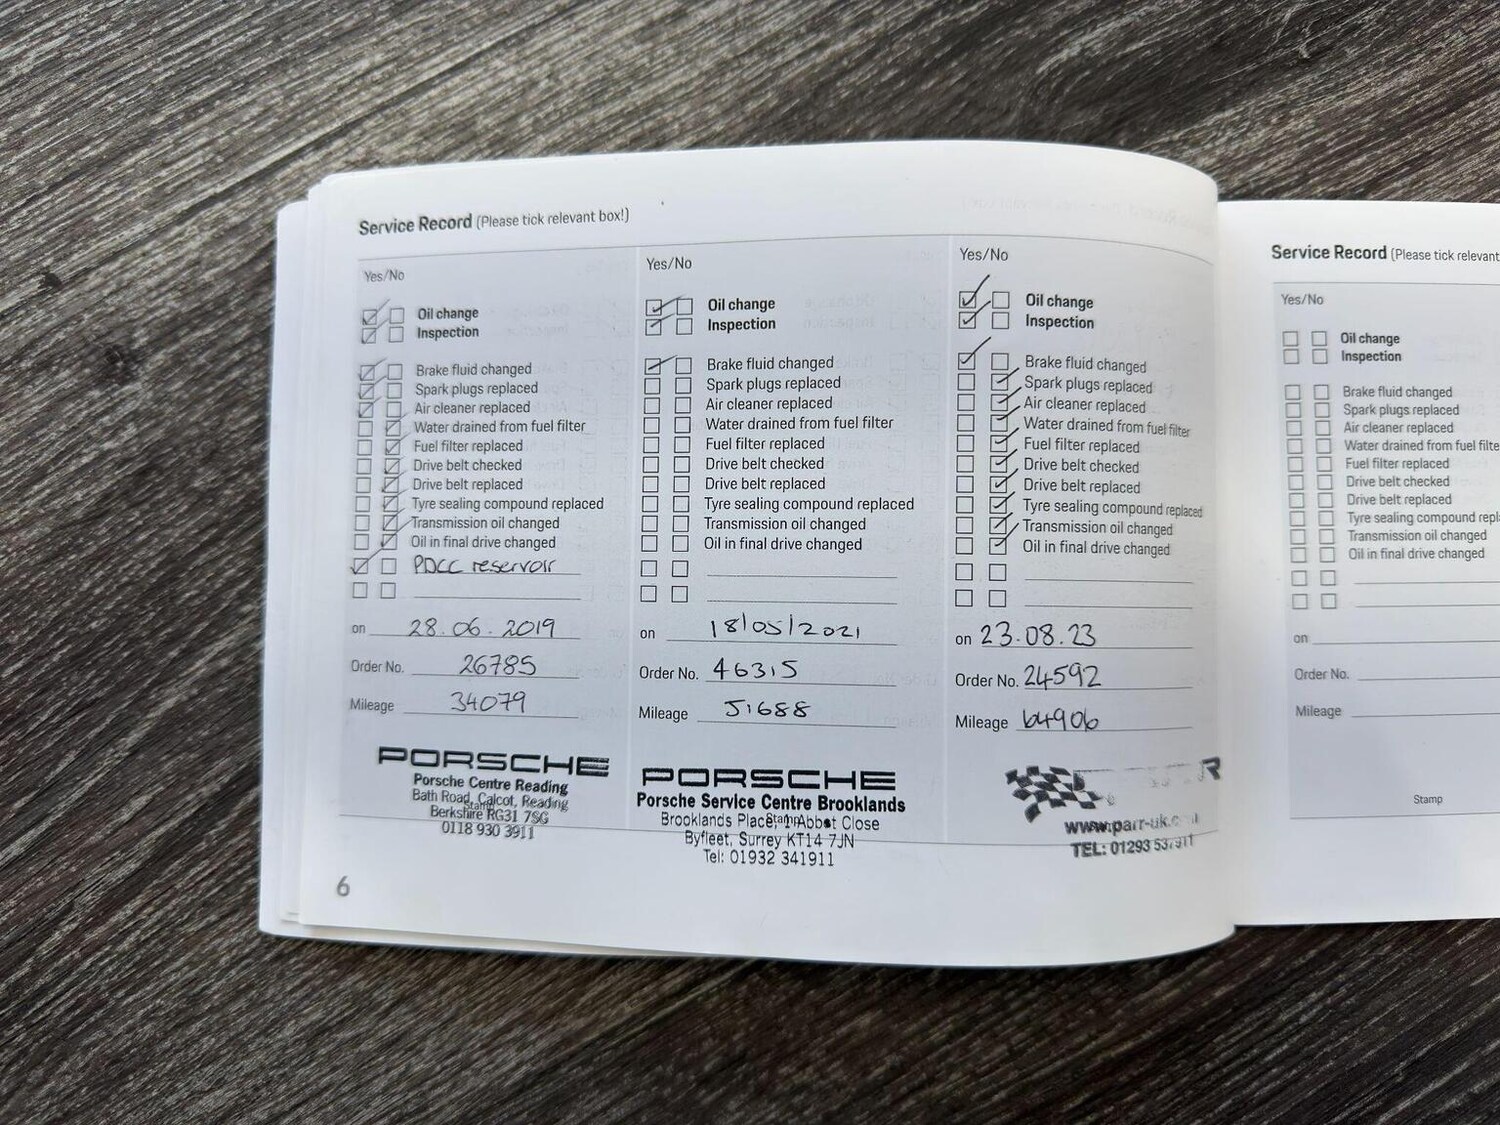 Service Record (Please tick relevant box!)
Yes/No
Oil change
Inspection
Brake fluid changed
Spark plugs replaced
Air cleaner replaced
Water drained from fuel filter
Fuel filter replaced
Drive belt checked
Drive belt replaced
Tyre sealing compound replaced
Transmission oil changed
Oil in final drive changed
PDCC reservoir
on 28.06.2019
Order No. 26785
Mileage 34079
PORSCHE
Porsche Centre Reading
Bath Road, Calcot, Reading
Stamp
Berkshire RG31 7SG
0118 930 3911
6
Yes/No
Oil change
Inspection
Brake fluid changed
Spark plugs replaced
Air cleaner replaced
Water drained from fuel filter
Fuel filter replaced
Drive belt checked
Drive belt replaced
Tyre sealing compound replaced
Transmission oil changed
Oil in final drive changed
on 18/05/2021
Order No. 46315
Mileage 51688
PORSCHE
Porsche Service Centre Brooklands
Brooklands Place, 1 Abbot Close
Stamp
Byfleet, Surrey KT14 7JN
Tel: 01932 341911
Yes/No
Oil change
Inspection
Brake fluid changed
Spark plugs replaced
Air cleaner replaced
Water drained from fuel filter
Fuel filter replaced
Drive belt checked
Drive belt replaced
Tyre sealing compound replaced
Transmission oil changed
Oil in final drive changed
on 23.08.23
Order No. 24592
Mileage 64906
R
www.parr-uk.
TEL: 01293
Service Record (Please tick relevant
Yes/No
Oil change
Inspection
Brake fluid changed
Spark plugs replaced
Air cleaner replaced
Water drained from fuel filte
Fuel filter replaced
Drive belt checked
Drive belt replaced
Tyre sealing compound repl
Transmission oil changed
Oil in final drive changed
on
Order No.
Mileage
Stamp